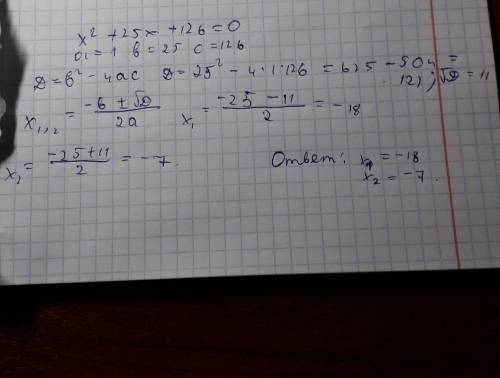 x² + 25x + 126 = 0
a = 1 b = 25 c = 126
D = b² - 4ac D = 25² - 4·1·126 = 625 - 504 =
121; √D = 11
x₁,₂ = (-b ± √D)/2a x₁ = (-25 - 11)/2 = -18
x₂ = (-25 + 11)/2 = -7.
Ответ: x₁ = -18
x₂ = -7.